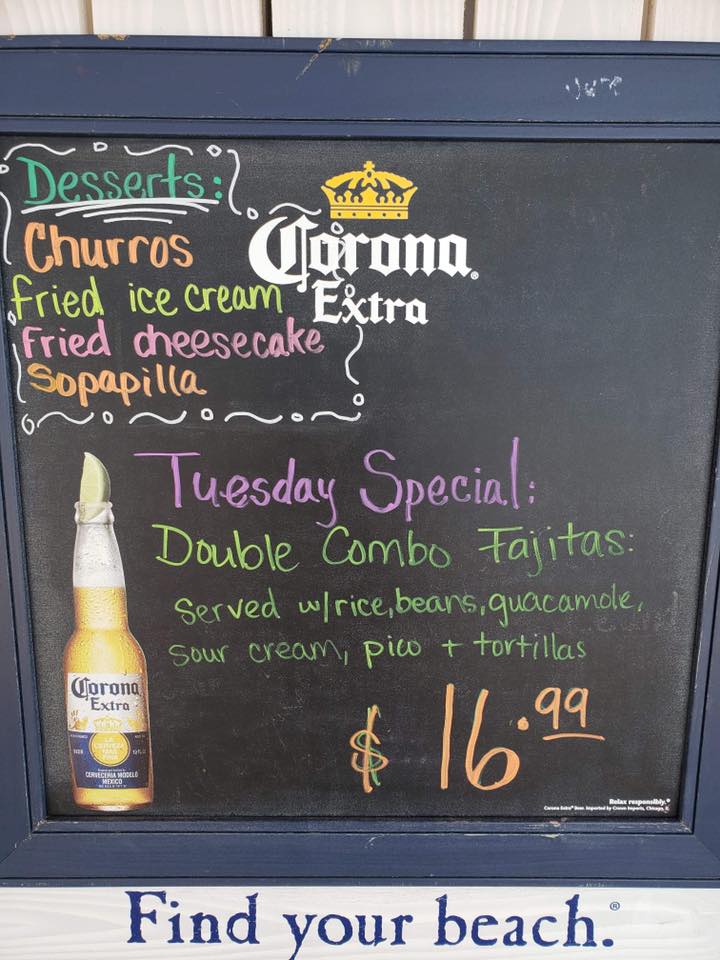 Desserts:
Churros
fried ice cream
Fried cheesecake
Sopapilla
Corona
Extra
Tuesday Special:
Double Combo Fajitas:
served w/rice, beans, guacamole,
sour cream, pico + tortillas
$ 16.99
Corona
Extra
LA
CERVEZA
MAS
FINA
CERVECERIA MODELO
MEXICO
Relax responsibly.®
Corona Extra® Beer. Imported by Crown Imports, Chicago, IL
Find your beach.®